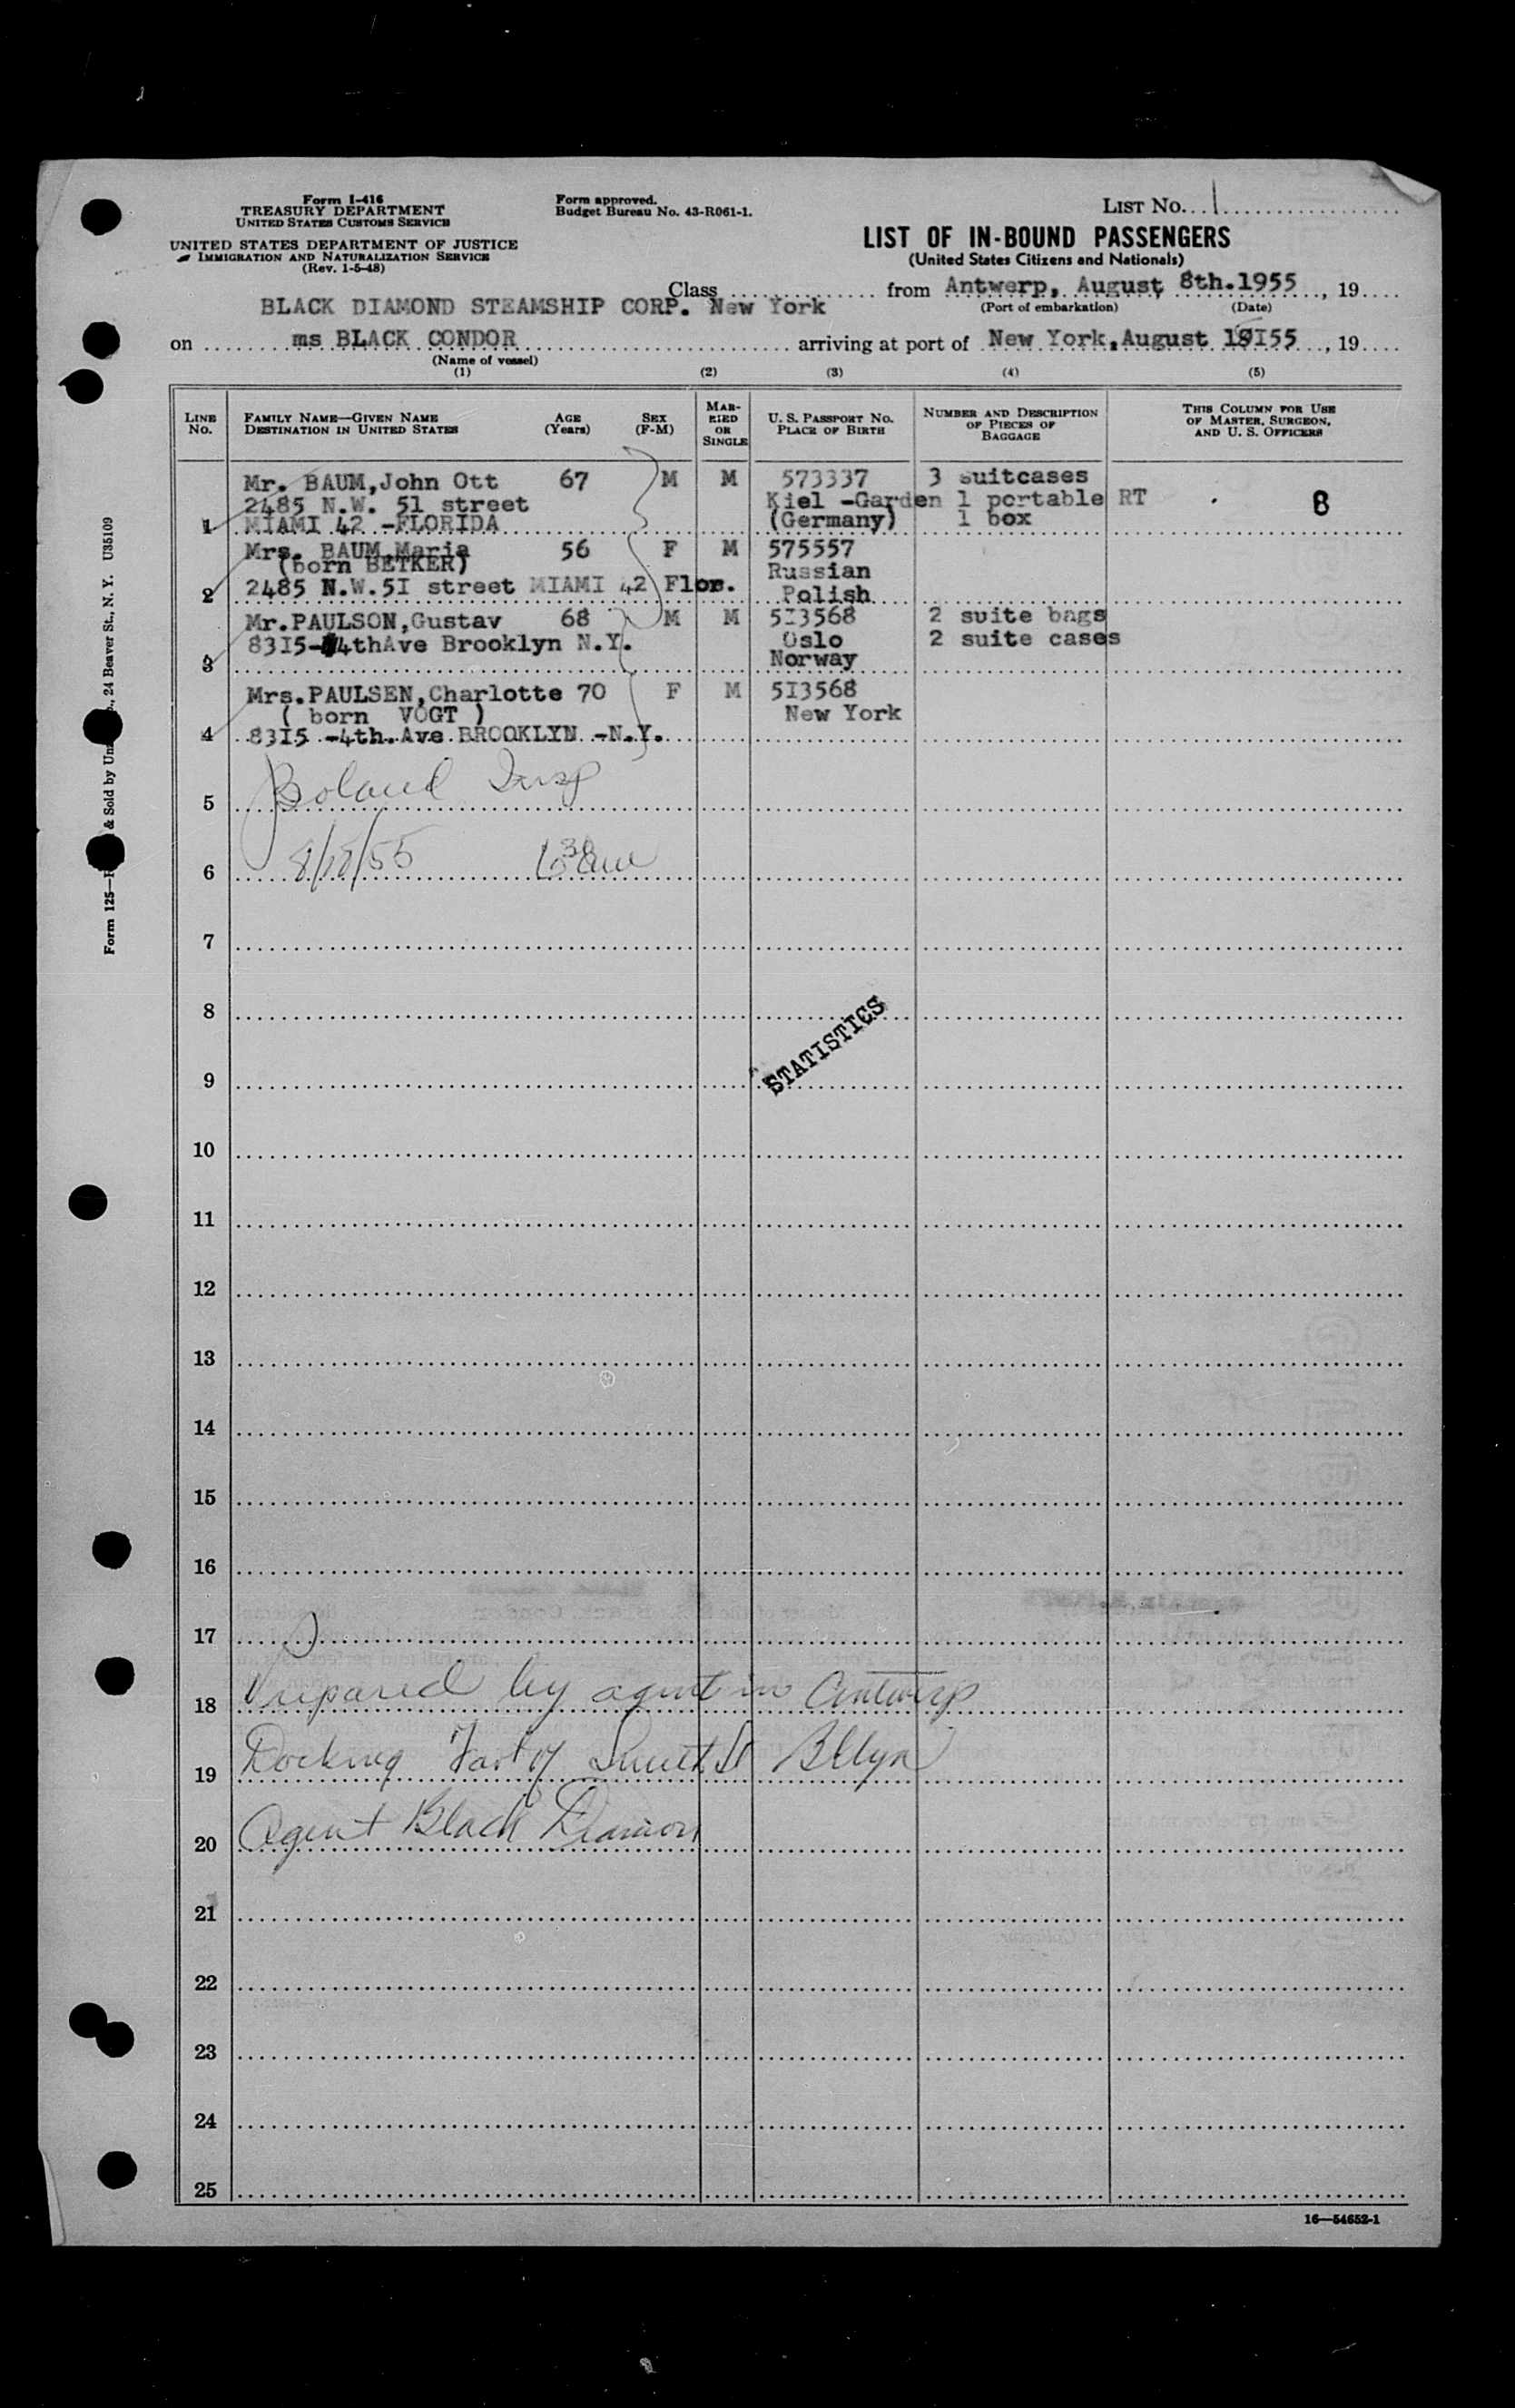 Form I-416
TREASURY DEPARTMENT
UNITED STATES CUSTOMS SERVICE
UNITED STATES DEPARTMENT OF JUSTICE
IMMIGRATION AND NATURALIZATION SERVICE
(Rev. 1-5-48)
Form approved.
Budget Bureau No. 43-R061-1.
LIST No. 1
LIST OF IN-BOUND PASSENGERS
(United States Citizens and Nationals)
Class from Antwerp, August 8th.1955, 19
(Port of embarkation) (Date)
BLACK DIAMOND STEAMSHIP CORP. New York
on ms BLACK CONDOR arriving at port of New York, August, 19
(Name of vessel)
(1) (2) (3) (4) (5)
LINE No. FAMILY NAME—GIVEN NAME DESTINATION IN UNITED STATES AGE (Years) SEX (F-M) MARRIED OR SINGLE U. S. PASSPORT No. PLACE OF BIRTH NUMBER AND DESCRIPTION OF PIECES OF BAGGAGE THIS COLUMN FOR USE OF MASTER, SURGEON, AND U. S. OFFICERS
Mr. BAUM,John Ott 67 M M 573337 3 suitcases
2485 N.W. 51 street Kiel -Garden 1 portable RT 8
1 MIAMI 42 -FLORIDA (Germany) 1 box
Mrs. BAUM,Maria 56 F M 575557
(born BETKER) Russian
2 2485 N.W.5I street MIAMI 42 Flor. Polish
Mr.PAULSON,Gustav 68 M M 5I3568 2 suite bags
83I5-4thAve Brooklyn N.Y. Oslo 2 suite cases
3 Norway
Mrs.PAULSEN,Charlotte 70 F M 5I3568
( born VOGT ) New York
4 83I5 -4th.Ave BROOKLYN -N.Y.
5 Boland Insp
6 8/18/55 6 30 am
7
8
STATISTICS
9
10
11
12
13
14
15
16
17
18 Prepared by agent in Antwerp
19 Docking Foot of Smith St Bklyn
20 Agent Black Diamon
21
22
23
24
25
16—54652-1
& Sold by 24 Beaver St., N. Y. U35109
Form 125—